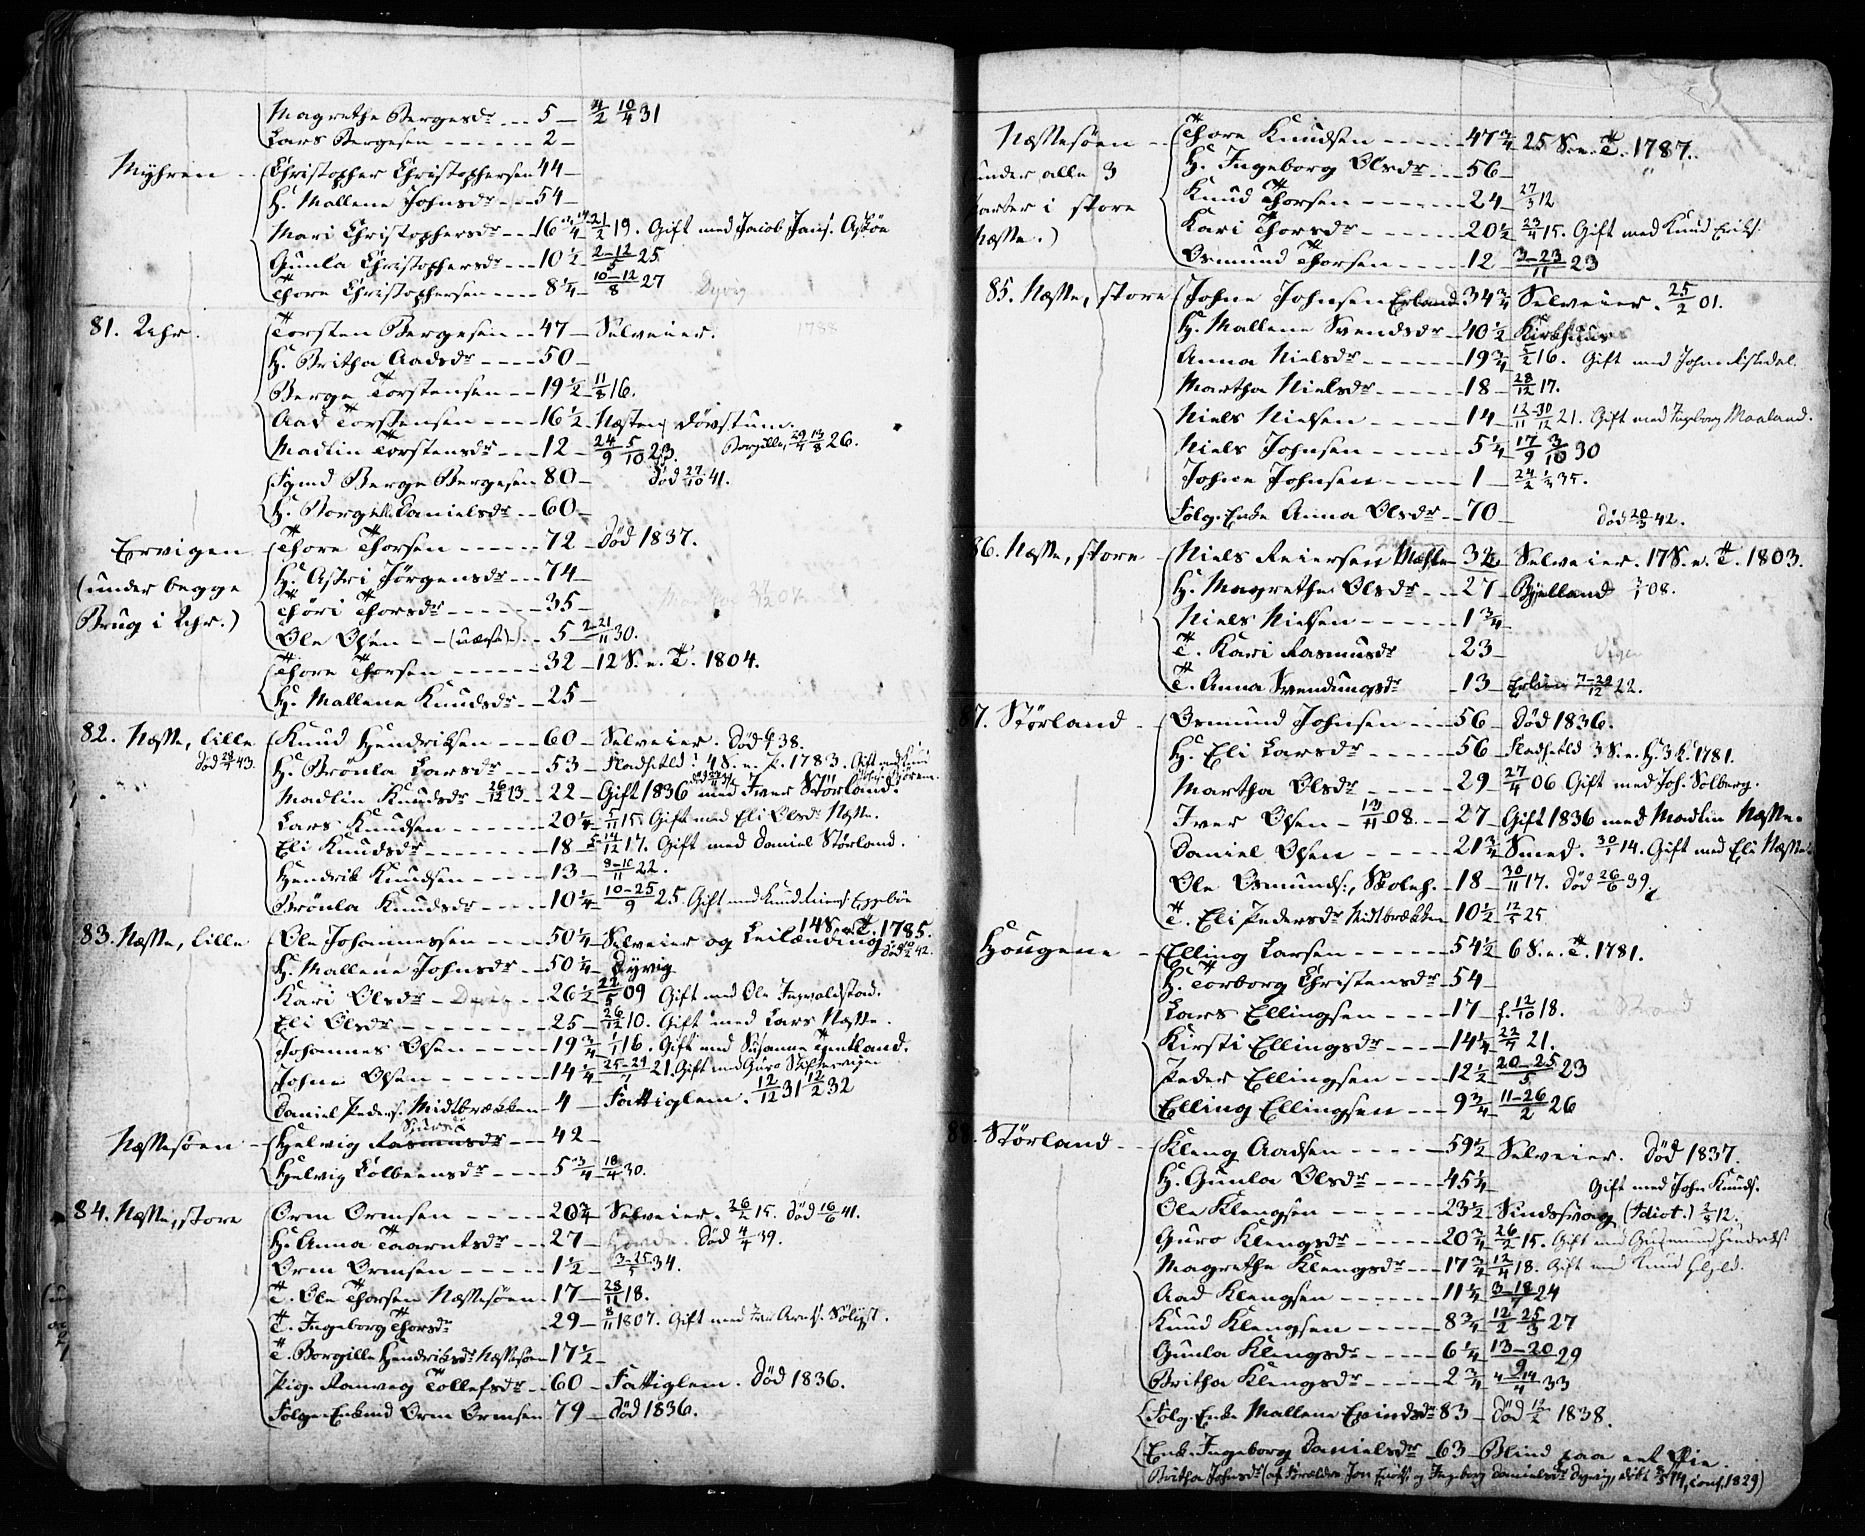 Magrethe Bergesdr --- 5 — 4/2 10/4 31
Lars Bergesen ------ 2 —
Myhren - Christopher Christophersen 44 —
H. Mallene Johnsdr --- 54 —
Mari Christophersdr -- 16 3/4 21/2 19. Gift med Jacob Jans. Askøe
Gunla Christophersdr -- 10 1/2 2-12/5 25
Thore Christophersen ---- 8 1/4 10-12/8 27 Dyvig
81. Uhr. Torsten Bergesen -- 47 — Selveier. 1788
H. Britha Aadsdr ---- 50 —
Berge Torstensen --- 19 1/2 11/8 16.
Aad Torstensen ---- 16 1/2 Næsten døvstum.
Madlin Torstensdr --- 12 — 24/9 5/10 23. 26.
Berge Bergesen 80 — Død 27/10 41.
H. Borgille Danielsdr -- 60 —
Ervigen Thore Thorsen ----- 72 — Død 1837.
(under begge H. Astri Jørgensdr --- 74 —
Brug i Uhr.) Thori Thorsdr ------ 35 —
Ole Olsen -- (uægte) -- 5 — 2-21/11 30.
Thore Thorsen ------ 32 — 12 S. e. T. 1804.
H. Mallene Knudsdr -- 25 —
82. Næsse, lille Knud Hendriksen --- 60 — Selveier. Død 38.
Død 28/4 43. H. Brønla Larsdr ---- 53 — Fladefeld! 4 S. e. P. 1783.
Madlin Knudsdr 26/12 13 -- 22 — Gift 1836 med Iver Størland.
Lars Knudsen ------- 20 1/4 5/11 15. Gift med Eli Olsdr Næsse.
Eli Knudsdr -------- 18 — 14/12 17. Gift med Daniel Størland.
Hendrik Knudsen ----- 13 — 8-10/11 22.
Brønla Knudsdr ----- 10 1/4 10-25/9 25. Gift med
14 S. e. T. 1785.
83. Næsse, lille Ole Johannessen ---- 50 1/4 Selveier og Leilænding
H. Mallene Johnsdr -- 50 1/4 Dyvig
Kari Olsdr - Dyvig -- 26 1/2 22/5 09 Gift med Ole Ingvaldstad.
Eli Olsdr -------- 25 — 26/12 10. Gift med Lars Næsse.
Johannes Olsen ---- 19 3/4 1/1 16. Gift med Susanne
Johne Olsen ------ 14 1/4 25-29/7 21. Gift med Guro
Daniel Peders. Midtbrækken - 4 — Fattiglem. 12/12 31 12/2 32
Næssesøen - Helvig Rasmusdr --- 42 —
Helvig Kolbeensdr ---- 5 3/4 18/4 30.
84. Næsse, store Orm Ormsen ---- 20 3/4 Selveier. 26/2 15. Død 16/6 41.
H. Anna Taarntsdr -- 27 — Død 4/4 39.
Orm Ormsen ----- 1 1/2 3-25/5 34.
T. Ole Thorsen Næssesøen - 17 — 28/11 18.
T. Ingeborg Thorsdr 29 — 8/11 1807. Gift med
T. Borgille Hendriksdr Næssesøen 17 1/2
Pig. Ranveg Tollefsdr -- 60 — Fattiglem. Død 1836.
Folge-Enkemd Orm Ormsen 79 — Død 1836.
Næssesøen -- Thore Knudsen ------ 47 3/4 25 S. e. T. 1787.
(under alle 3 H. Ingeborg Olsdr --- 56 —
parter i store Knud Thorsen ------- 24 — 27/3 12
Næsse.) Kari Thorsdr ------ 20 1/2 23/4 15. Gift med Knud Eriks.
Osmund Thorsen ---- 12 — 3-23/11 23
85. Næsse, store Johne Johnsen Erland 34 3/4 Selveier. 25/2 01.
H. Mallene Svendsdr -- 40 1/2 Kirkehuus
Anna Nielsdr ------ 19 3/4 5/2 16. Gift med John
Martha Nielsdr ----- 18 — 28/12 17.
Niels Nielsen ------ 14 — 12-30/11 12 21. Gift med Ingeborg Maaland.
Niels Johnsen ----- 5 1/4 17/9 3/10 30
Johne Johnsen ---- 1 — 24/2 1/3 35.
Folg. Enke Anna Olsdr -- 70 — Død 20/3 42.
86. Næsse, store - Niels Reiersen 32 — Selveier. 17 S. e. T. 1803.
H. Magrethe Olsdr -- 27 — Bjelland 08.
Niels Nielsen ------ 1 3/4
T. Kari Rasmusdr - 23 —
T. Anna Svendungsdr - 13 — 7-29/12 22.
87. Størland - Osmund Johnsen --- 56 — Død 1836.
H. Eli Larsdr ------ 56 — Fladefeld 3 S. e. H. 3 K. 1781.
Martha Olsdr ----- 29 — 27/4 06 Gift med Joh. Solberg.
Iver Olsen - 13/11 08. -- 27 — Gift 1836 med Madlin Næsse.
Daniel Olsen ----- 21 3/4 Smed. 30/1 14. Gift med Eli Næsse.
Ole Osmunds., Skoleh. - 18 — 30/11 17. Død 26/6 39.
T. Eli Pedersdr Midtbrækken 10 1/2 12/5 25
Hougene - Elling Larsen ----- 54 1/2 6 S. e. T. 1781.
H. Torborg Christensdr 54 —
Lars Ellingsen ---- 17 — f. 12/10 18.
Kirsti Ellingsdr ---- 14 1/4 22/7 21.
Peder Ellingsen --- 12 1/2 20-25/5 23
Elling Ellingsen --- 9 3/4 11-26/2 26
88. Størland - Kleng Aadsen ---- 59 1/2 Selveier. Død 1837.
H. Gunla Olsdr ---- 45 1/4 Gift med John Knuds.
Ole Klengsen ----- 23 1/2 Sindssvag (Idiot.) 2/3 12.
Guro Klengsdr ----- 20 3/4 26/2 15. Gift med
Magrethe Klengsdr --- 17 3/4 12/4 18. Gift med Knud
Aad Klengsen ----- 11 1/4 3-18/7 24
Knud Klengsen ---- 8 3/4 12/2 25/3 27
Gunla Klengsdr ---- 6 1/4 13-20/9 29
Britha Klengsdr ---- 2 3/4 4/4 14 33
Folg. Enke Mallene Evindsdr 83 — Død 12/2 1838.
Enke Ingeborg Danielsdr 63 — Blind paa eet Øie.
Britha Johnsdr (af Forældre Jon og Ingeborg Danielsdr Dyvig, døbt 2/5 14, conf. 1829)